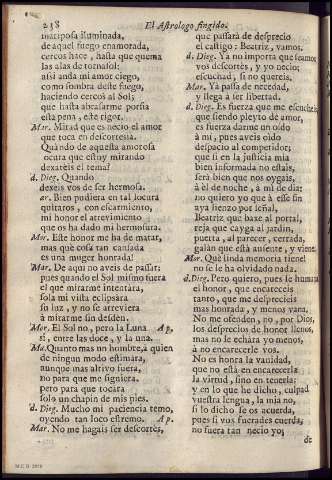 238
El Astrologo fingido.
mariposa iluminada,
de aquel fuego enamorada,
cercos hace, hasta que quema
las alas de tornasol:
assi anda mi amor ciego,
como sombra deste fuego,
haciendo cercos al Sol;
que hasta abrasarme porfia
esta pena, este rigor.
Mar. Mirad que es necio el amor
que toca en descortesia.
Quando de aquesta amorosa
locura que estoy mirando
dexareis el tema?
d. Dieg. Quando
dexeis vos de ser hermosa.
Mar. Bien pudiera en tal locura
quitaros, con escarmiento,
mi honor el atrevimiento
que os ha dado mi hermosura.
Mor. Este honor me ha de matar,
mas què cosa tan cansada
es una muger honrada!
Mar. De aqui no aveis de passar;
pues quando el Sol mismo fuera
el que mirarme intentàra,
sola mi vista eclipsàra
su luz, y no se atreviera
à mirarme sin desdèn.
Mor. El Sol no, pero la Luna Ap.
si, entre las doce, y la una.
Ma. Quanto mas un hombre, à quien
de ningun modo estimàra,
aunque mas altivo fuera,
no para que me siguiera,
pero para que tocàra
solo un chapin de mis pies.
d. Dieg. Mucho mi paciencia temo,
oyendo tan loco estremo. Ap.
Mar. No me hagais ser descortès,
que passarà de desprecio
el castigo: Beatriz, vamos.
d. Dieg. Ya no importa que seamos
vos descortès, y yo necio;
escuchad, si no quereis.
Mar. Yà passa de necedad,
y llega à ser libertad.
d. Dieg. Es fuerza que me escucheis,
que siendo pleyto de amor,
es fuerza darme un oìdo
à mì, pues aveis oìdo
despacio al competidor;
que si en la justicia mia
bien informada no estais,
serà bien que nos oygais,
à èl de noche, à mì de dia:
no quiero yo que à esse fin
aya lienzo por señal,
Beatriz que baxe al portal,
reja que cayga al jardin,
puerta, al parecer, cerrada,
galàn que està ausente, y viene.
Mar. Què linda memoria tiene!
no se le ha olvidado nada.
d. Dieg. Pero quiero, pues se humana
el honor, que encareceis
tanto, que me desprecieis
mas honrada, y menos vana.
No me ofenden, no, por Dios,
los desprecios de honor llenos,
mas no le echàra yo menos,
à no encarecerle vos.
No es honra la vanidad,
que no està en encarecerla
la virtud, sino en tenerla:
y en lo que he dicho, culpad
vuestra lengua, la mia no,
si lo dicho se os acuerda,
pues si vos fuerades cuerda,
no fuera tan necio yo;
de